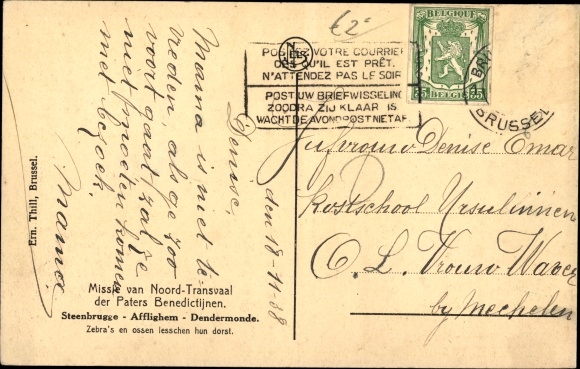 £2-
POSTEZ VOTRE COURRIER
DES QU'IL EST PRÊT.
N'ATTENDEZ PAS LE SOIR
POST UW BRIEFWISSELING
ZOODRA ZIJ KLAAR IS
WACHT DE AVONDPOST NIET AF.
BELGIQUE
35 35
BRUSSEL
den 18-11-38
Denise,
Mama is niet te-
vreden, als ge zoo
voort gaat zal ge
niet moeten komen
met bezoek.
Mama
Jufvrouw Denise Omar
Kostschool Ursulinnen
O. L. Vrouw Waver
by Mechelen
Ern. Thill, Brussel.
NELS
Missie van Noord-Transvaal
der Paters Benedictijnen.
Steenbrugge - Afflighem - Dendermonde.
Zebra's en ossen lesschen hun dorst.